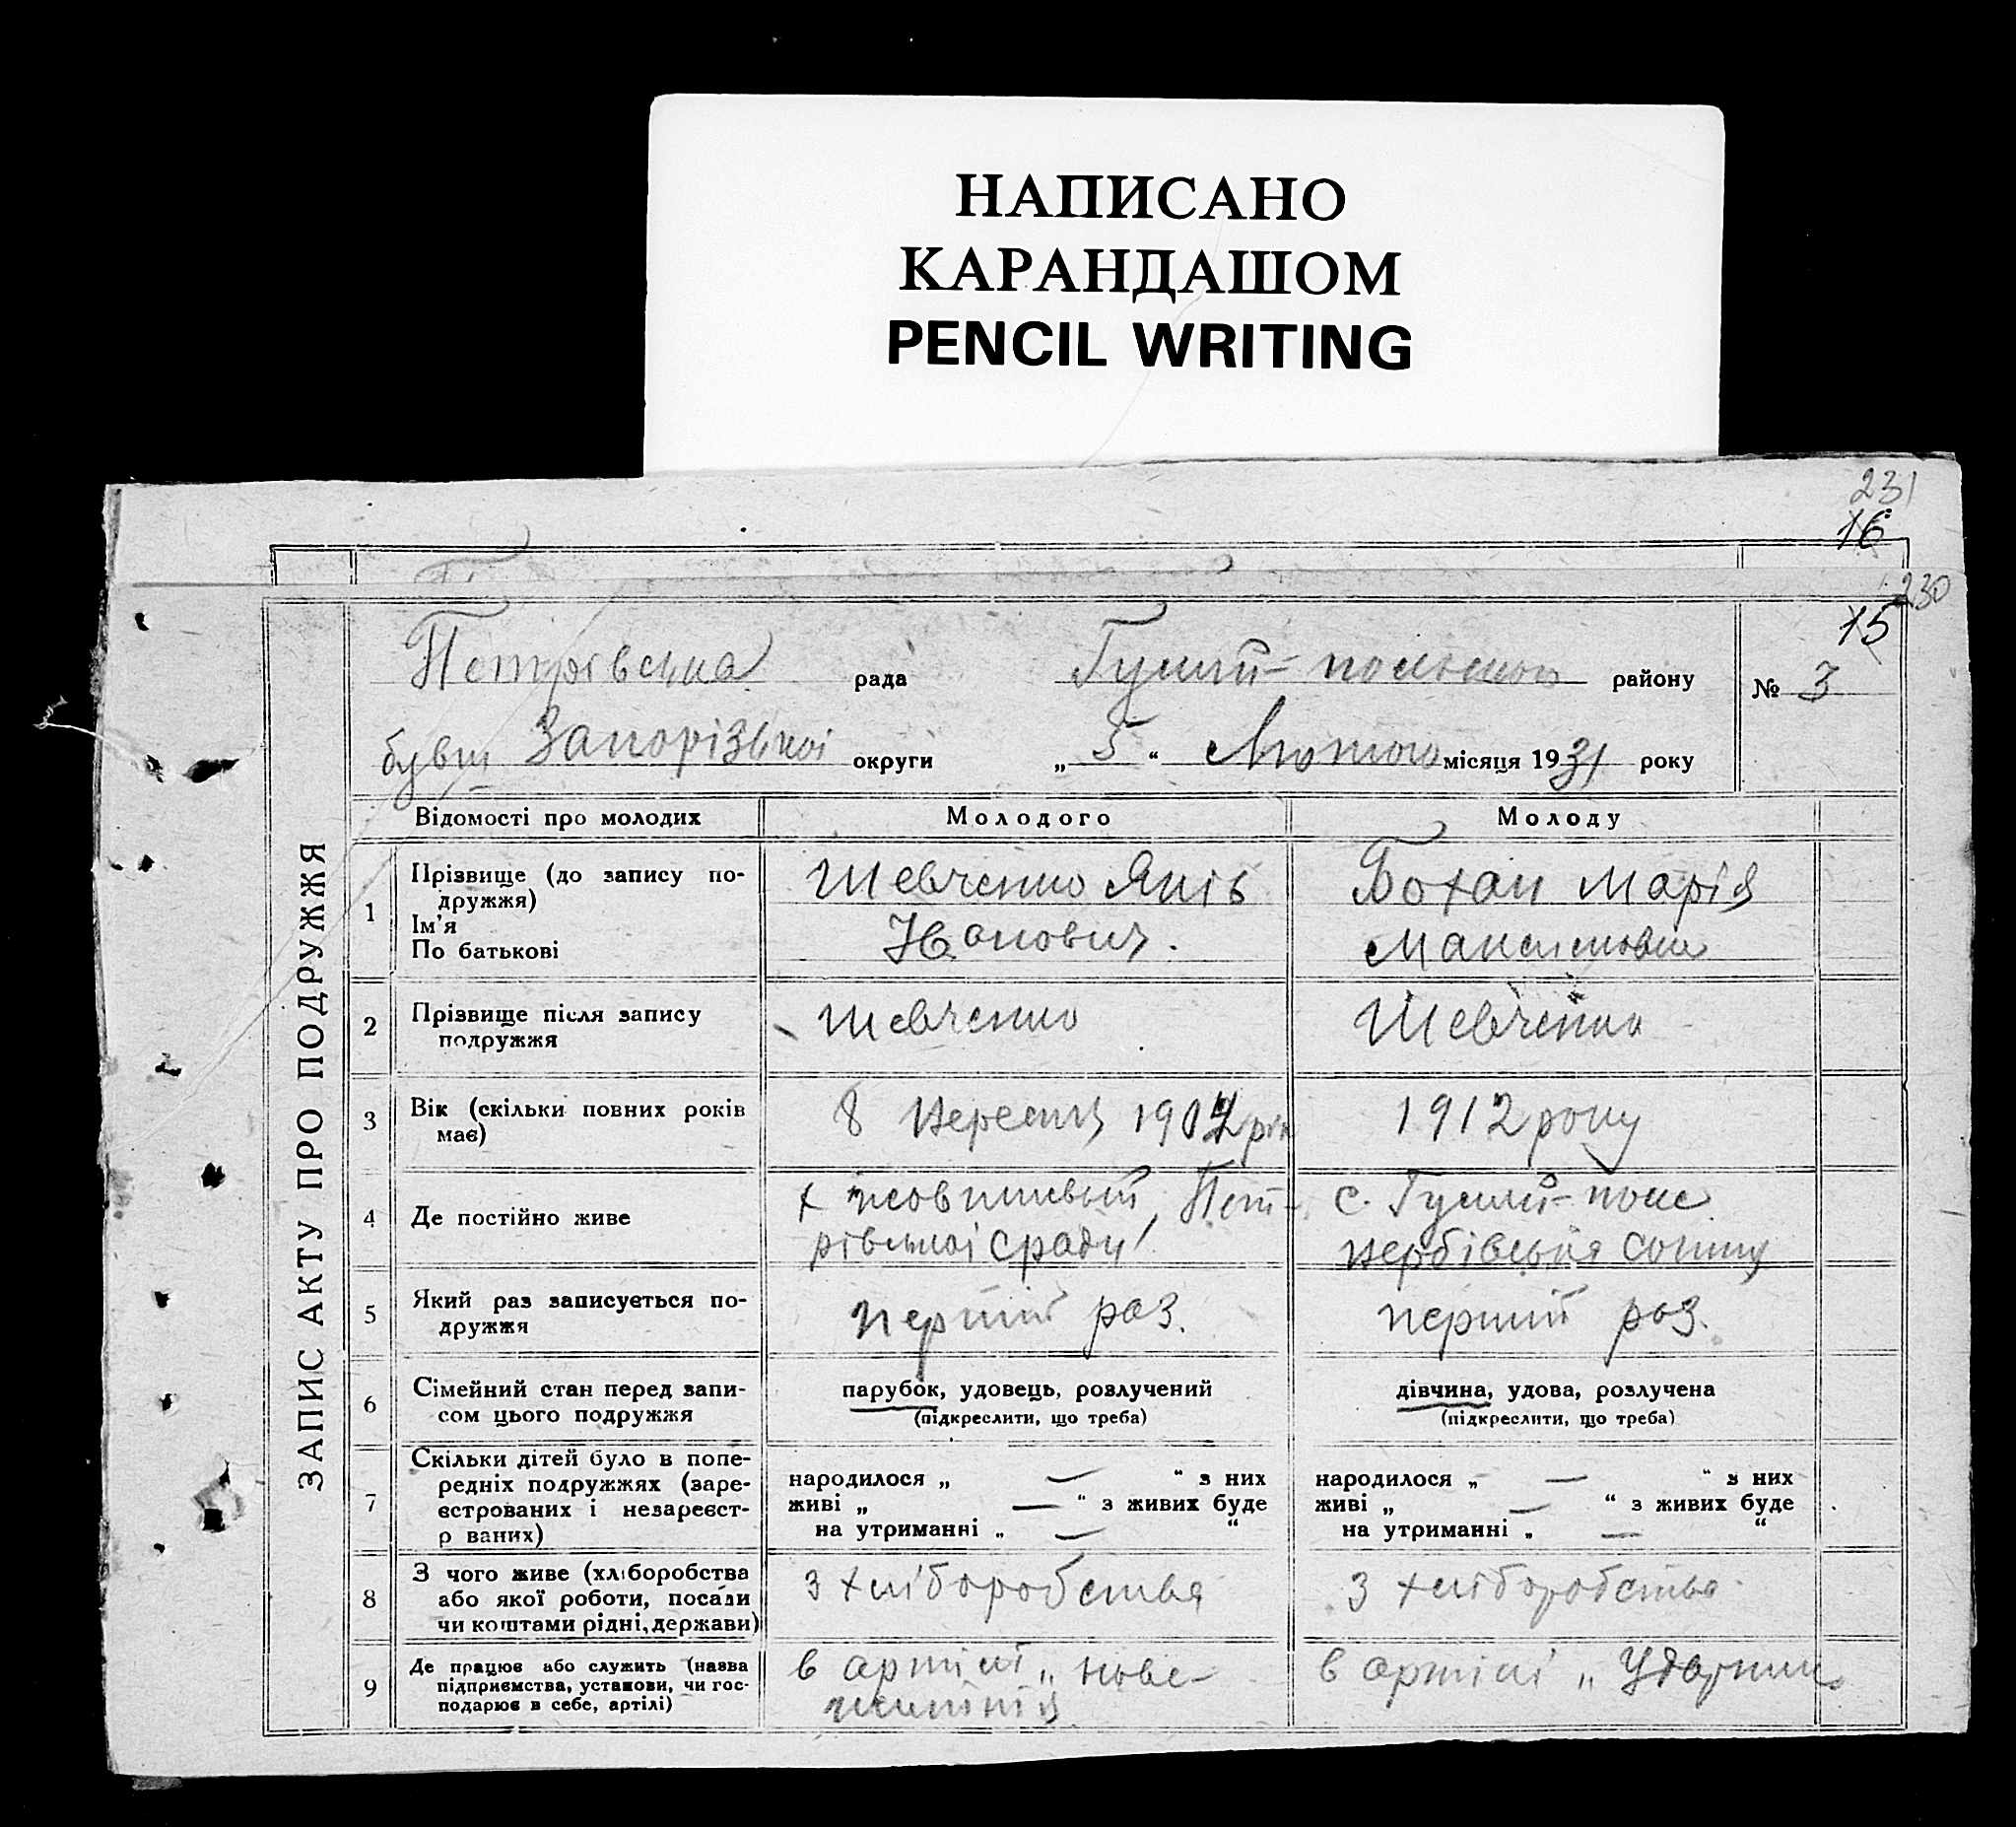 НАПИСАНО
КАРАНДАШОМ
PENCIL WRITING
231
16
230
15
Петрівська рада Гуляй-польского району № 3
бувш Запорізької округи „ 5 “ Лютого місяця 1931 року
ЗАПИС АКТУ ПРО ПОДРУЖЖЯ
Відомості про молодих Молодого Молоду
1 Прізвище (до запису по-
дружжя)
Ім'я
По батькові
Шевченко Яків
Іванович.
Бохан Марія
Максимовна
2 Прізвище після запису
подружжя
Шевченко
Шевченко
3 Вік (скільки повних років
має)
8 Вересня рік
1912 року
4 Де постійно живе
х Пет-
рівської сради
с. Гуляй-поле
вербівська сотня
5 Який раз записується по-
дружжя
перший раз.
перший раз.
6 Сімейний стан перед запи-
сом цього подружжя
парубок, удовець, розлучений
(підкреслити, що треба)
дівчина, удова, розлучена
(підкреслити, що треба)
7 Скільки дітей було в попе-
редніх подружжях (заре-
єстрованих і незареєст-
р ваних)
народилося „ — “ з них
живі „ — “ з живих буде
на утриманні „ — “
народилося „ — “ з них
живі „ — “ з живих буде
на утриманні „ — “
8 З чого живе (хліборобства
або якої роботи, посади
чи коштами рідні, держави)
з хліборобства
з хліборобства
9 Де працює або служить (назва
підприємства, установи, чи гос-
подарює в себе, артілі)
в артілі „ нове-
життія
в артілі „ Ударник